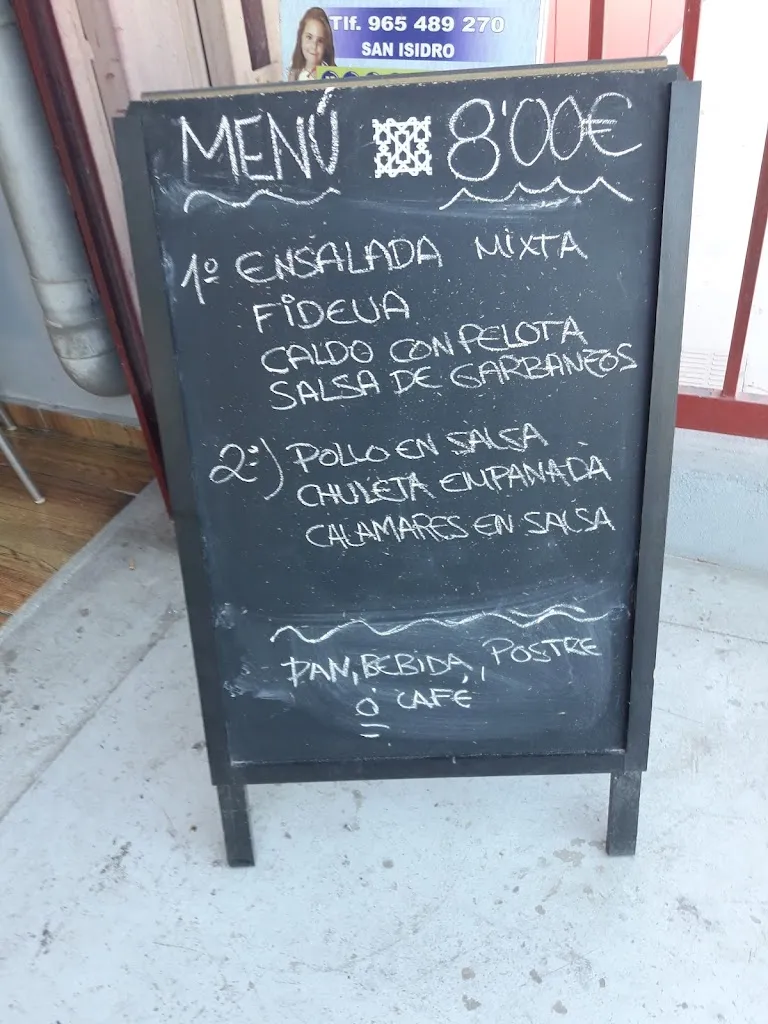 Tlf. 965 489 270
SAN ISIDRO
MENÚ 8'00€
1º ENSALADA MIXTA
FIDEUA
CALDO CON PELOTA
SALSA DE GARBANZOS
2º) POLLO EN SALSA
CHULETA EMPANADA
CALAMARES EN SALSA
PAN, BEBIDA, POSTRE
Ó CAFÉ